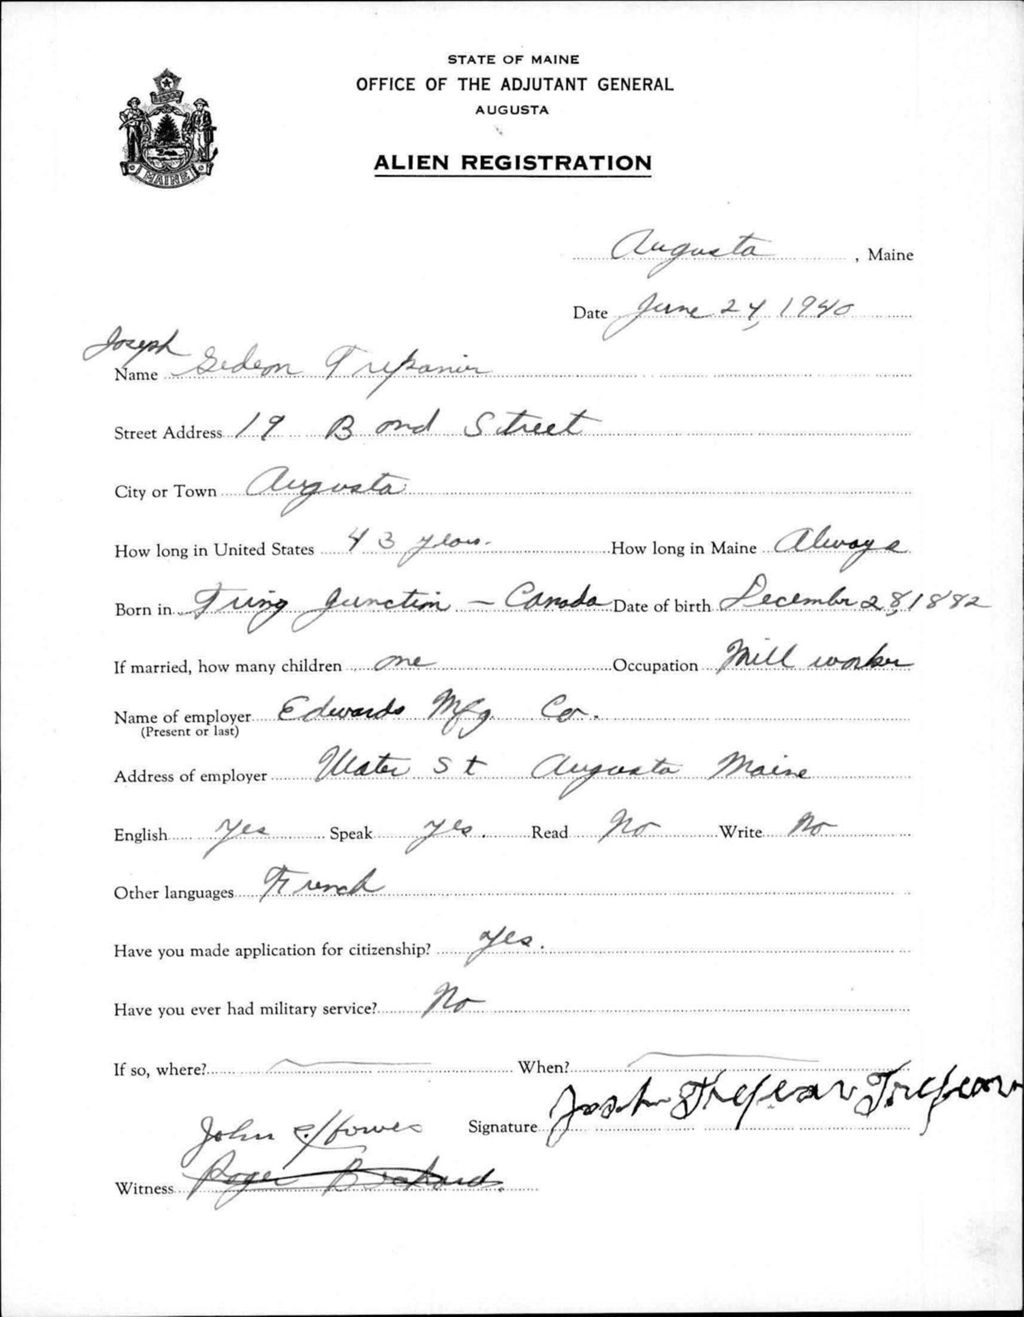 STATE OF MAINE
OFFICE OF THE ADJUTANT GENERAL
AUGUSTA
ALIEN REGISTRATION
MAINE
Augusta, Maine
Date June 24, 1940
Joseph
Name Gedeon Trepanier
Street Address 19 Bond Street
City or Town Augusta
How long in United States 43 years. How long in Maine Always
Born in Tring Junction - Canada Date of birth December 28, 1882
If married, how many children one Occupation Mill worker
Name of employer Edwards Mfg. Co.
(Present or last)
Address of employer Water St Augusta Maine
English Yes Speak yes. Read No Write No
Other languages French
Have you made application for citizenship? yes.
Have you ever had military service? No
If so, where? When?
Signature
John
Witness Roger